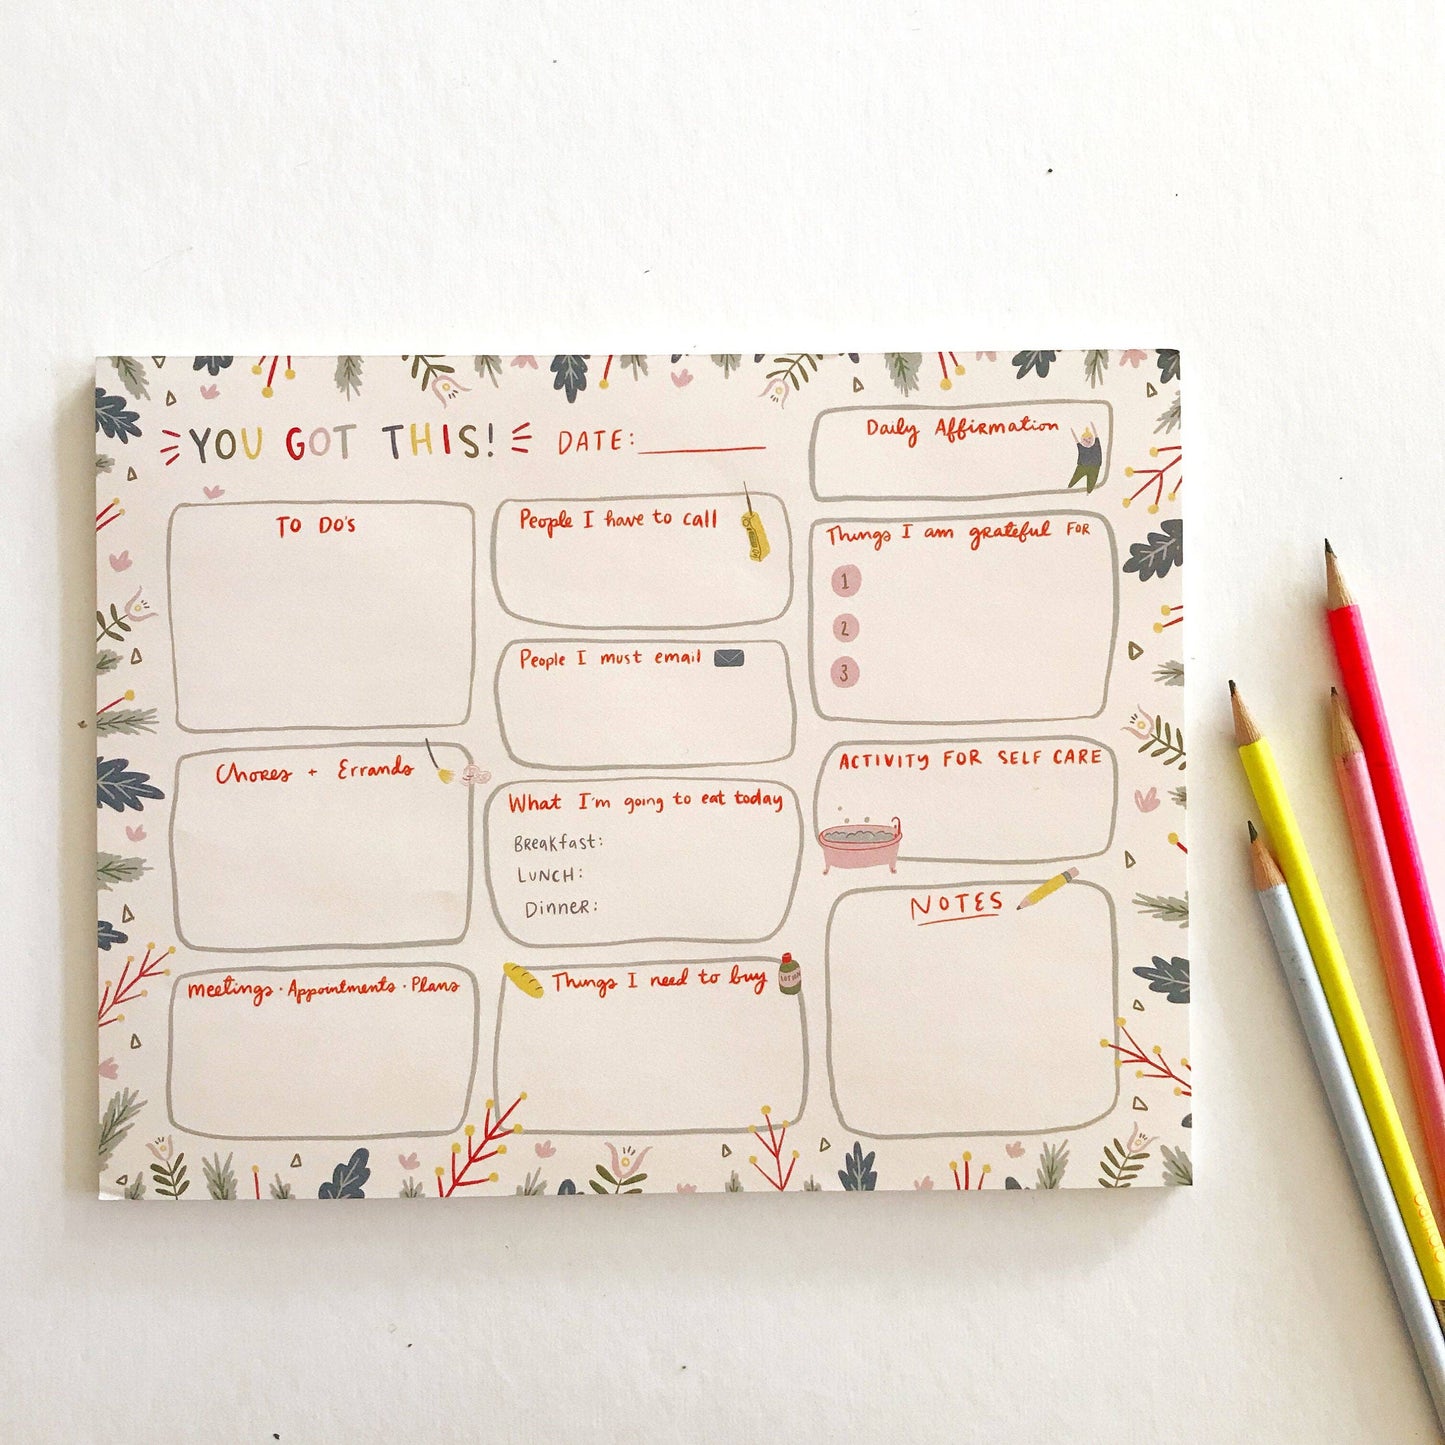 YOU GOT THIS!
DATE:
Daily Affirmation
TO DO'S
People I have to call
Things I am grateful FOR
1
2
3
People I must email
Chores + Errands
What I'm going to eat today
Breakfast:
LUNCH:
Dinner:
ACTIVITY FOR SELF CARE
NOTES
Meetings · Appointments · Plans
Things I need to buy